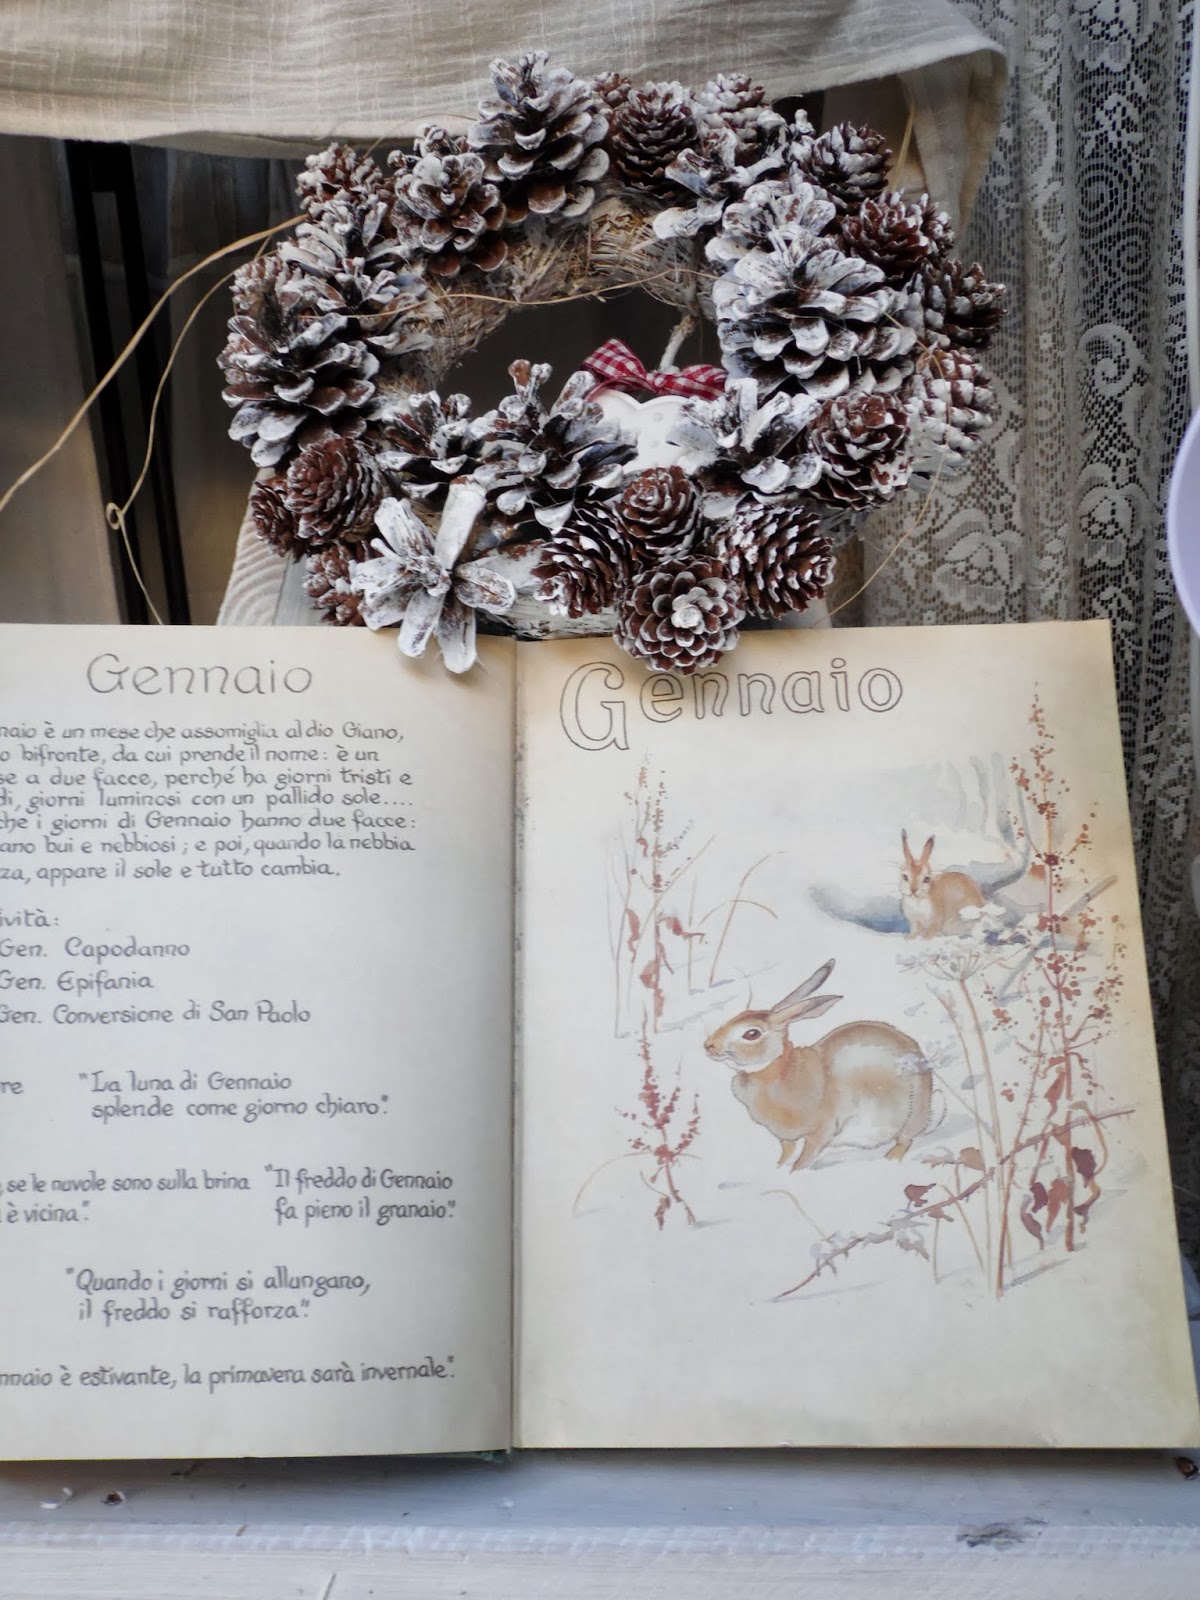 Gennaio
naio è un mese che assomiglia al dio Giano,
o bifronte, da cui prende il nome: è un
se a due facce, perché ha giorni tristi e
di, giorni luminosi con un pallido sole....
che i giorni di Gennaio hanno due facce:
ano bui e nebbiosi; e poi, quando la nebbia
za, appare il sole e tutto cambia.
ività:
Gen. Capodanno
Gen. Epifania
Gen. Conversione di San Paolo
re "La luna di Gennaio
splende come giorno chiaro".
, se le nuvole sono sulla brina "Il freddo di Gennaio
è vicina". fa pieno il granaio".
"Quando i giorni si allungano,
il freddo si rafforza".
nnaio è estivante, la primavera sarà invernale".
Gennaio